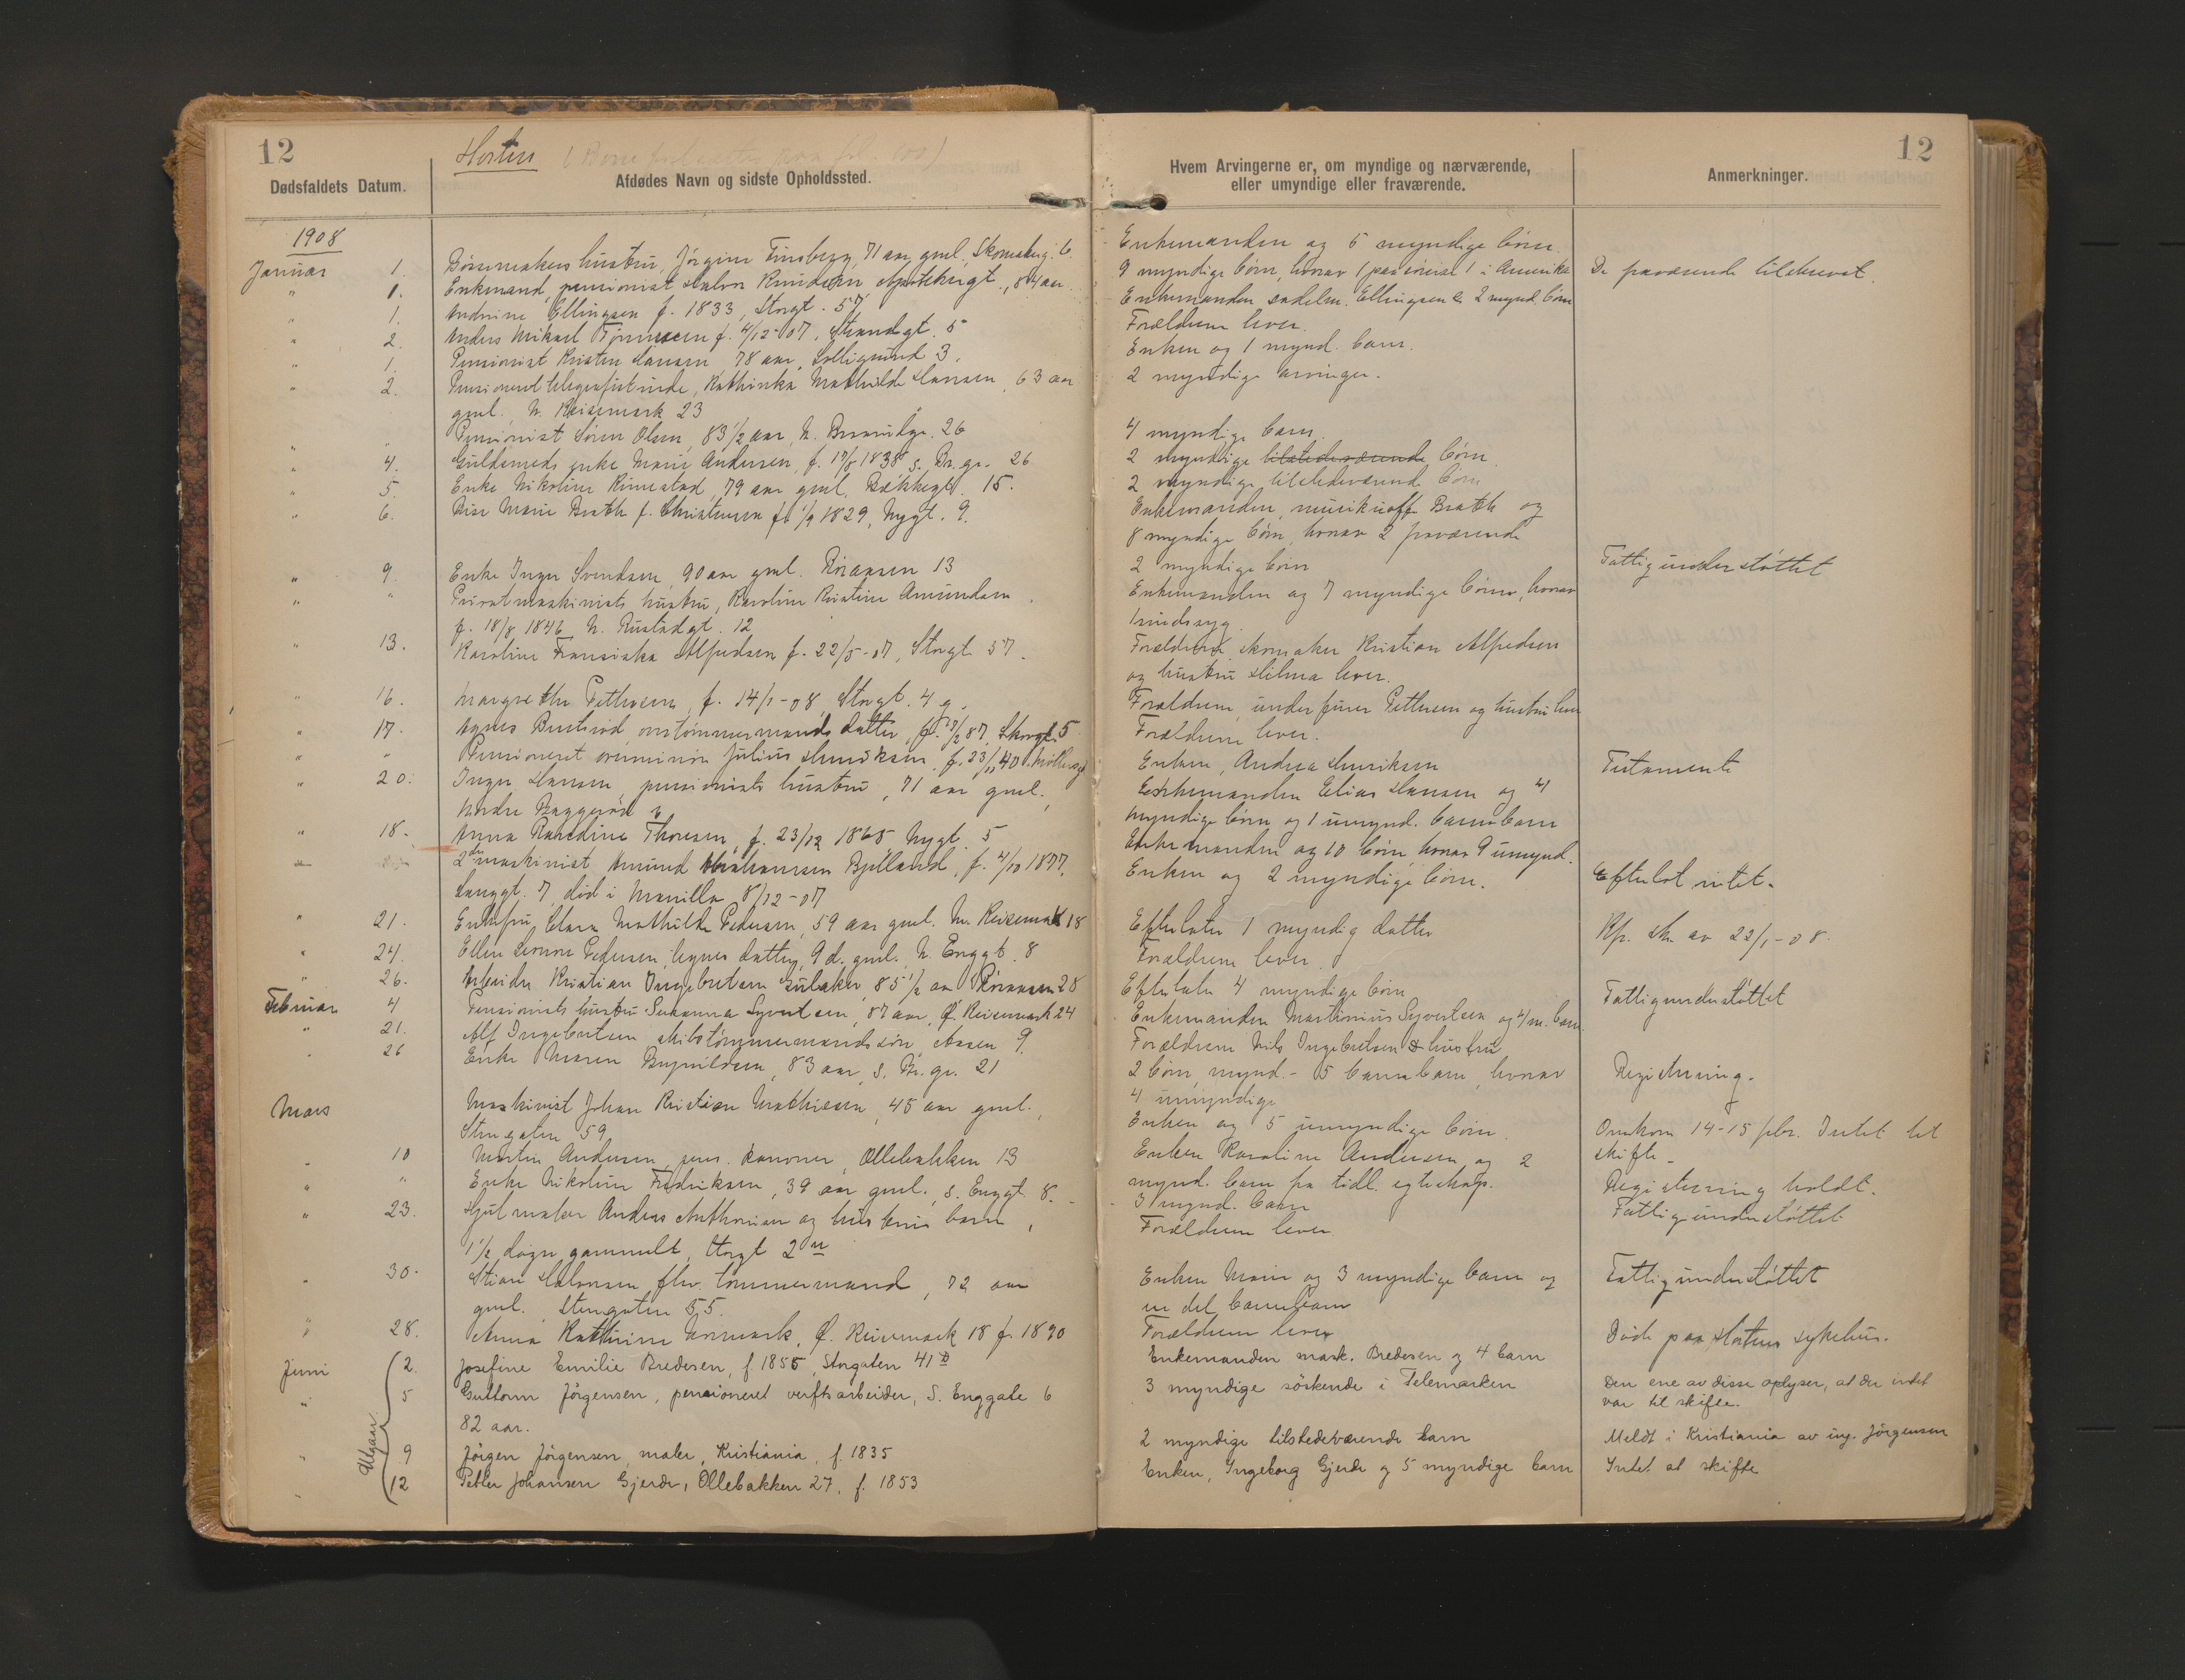 12
Horten
Dødsfaldets Datum.
Afdødes Navn og sidste Opholdssted.
1908
Januar 1. Børsemakers hustru, Jørgine Finsberg, 71 aar gml., 6.
" 1. Enkemand, pensionist Halvor Knudsen Apotekergt., 84 aar
" 1. Andrine Ellingsen f. 1833, Storgt. 57
" 2. Anders Mikael f. 4/12-07, Strandgt. 5
" 1. Pensionist Kristen Hansen, 78 aar, 3.
" 2. Pensioneret telegrafistinde, Kathinka Mathilde Hansen, 63 aar
gml. N. Keisemark 23
" " Pensionist Søren Olsen, 83 1/2 aar, N. 26
" 4. Guldsmeds enke Marie Andersen, f. 17/8 1838 s. Br. gr. 26
" 5. Enke Nikoline Rimestad, 79 aar gml. Bækkegt. 15.
" 6. Marie Brath f. Christensen 1/9 1829, Nygt. 9.
" 9. Enke Inger Svendsen, 90 aar gml. Røraasen 13
" " Privatmaskinists hustru, Karoline Kristine Amundsen
f. 18/8 1846 N. Rustadgt. 12
" 13. Karoline Fransiska Alfredsen f. 22/5-07, Storgt. 57.
" 16. Margrethe Pettersen, f. 14/1-08, Storgt. 4 g.
" 17. Agnes Buserød datter, 87, 5
" " Pensioneret Julius Henriksen, f. 23/11 40.
" 20. Inger Hansen, pensionists hustru, 71 aar gml.,
Nordre Baggerød
" 18. Anna Thoresen, f. 23/12 1865 Nygt. 5
2den maskinist Amund Bjelland, f. 4/10 1877,
Langgt. 7, död i Manilla 8/12-07
" 21. Enkefru Clara Mathilde Pedersen, 59 aar gml. N. Keisemark 18
" 24. Ellen Leonore Pedersen, datter, 9 d. gml. N. Enggt. 8
" 26. Arbeider Kristian Ingebretsen Gulaker, 85 1/2 aar Røraasen 28
Februar 4 Pensionists hustru Susanna Syvertsen, 87 aar, Ø. Keisemark 24
" 21. Alf Ingebretsen skibstømmermands søn, Aasen 9.
" 26 Enke Maren Brynildsen, 83 aar, s. Br. gr. 21
Mars Maskinist Johan Kristian Mathiesen, 45 aar gml.,
Stengaten 59
" 10 Martin Andersen, pens. kanoner, Ollebakken 13
" " Enke Nikoline Fredriksen, 39 aar gml., s. Enggt. 8.
" 23. Hjulmaker Anders Anthonisen og hustrus barn,
1 1/2 døgn gammelt, Storgt 2
" 30. Stian Halvorsen flv. tømmermand, 72 aar
gml. Stengaten 55.
" 28. Anna Kathrine Ø. Keisemark 18 f. 1890
Juni 2. Josefine Emilie Bredesen, f. 1855, Storgaten 41 b
" 5 Guttorm Jörgensen, pensioneret verftsarbeider, S. Enggate 6
82 aar.
Utgaar
" 9 Jörgen Jörgensen, maler, Kristiania, f. 1835
" 12 Petter Johansen Gjerde, Ollebakken 27. f. 1853
12
Hvem Arvingerne er, om myndige og nærværende,
eller umyndige eller fraværende.
Anmerkninger.
Enkemanden og 5 myndige børn.
9 myndige børn, hvorav 1 i Amerika De fraværende tilskrevet.
Enkemanden Ellingsen & 2 mynd. børn
Forældrene lever.
Enken og 1 mynd. barn.
2 myndige arvinger.
4 myndige barn.
2 myndige tilstedeværende børn.
2 myndige tilstedeværende børn
Enkemanden, Brath og
8 myndige børn, hvorav 2 fraværende
2 myndige børn Fattigunderstøttet
Enkemanden og 7 myndige børn, hvorav
1 sindssyg.
Forældrene, skomaker Kristian Alfredsen
og hustru Hilma lever.
Forældrene, Pettersen og hustru lever
Forældrene lever.
Enken, Andrea Henriksen Testamente
Enkemanden Elias Hansen og 4
myndige børn og 1 umynd. barnebarn
Enkemanden og 10 børn, hvorav 9 umynd.
Enken og 2 myndige børn. Efterlot intet.
Efterlater 1 myndig datter Kfr. skr. av 22/1-08.
Forældrene lever.
Efterlater 4 myndige børn Fattigunderstøttet
Enkemanden Martinius Syvertsen og 4 m. barn.
Forældrene Nils Ingebretsen & hustru
2 børn, mynd. - 5 barnebarn, hvorav Registrering.
4 umyndige
Enken og 5 umyndige børn. Omkom 14-15 febr. Intet til
skifte.
Enken Karoline Andersen og 2
mynd. barn fra tidl. egteskap. Registrering holdt.
3 mynd. barn Fattigunderstøttet
Forældrene lever.
Enken Marie og 3 myndige barn og Fattigunderstøttet
en del barnebarn
Forældrene lever Døde paa Hortens sykehus.
Enkemanden mask. Bredesen og 4 barn
3 myndige söskende i Telemarken Den ene av disse oplyser, at der intet
var til skifte.
2 myndige tilstedeværende barn Meldt i Kristiania av ing. Jörgensen
Enken, Ingeborg Gjerde og 5 myndige barn Intet at skifte